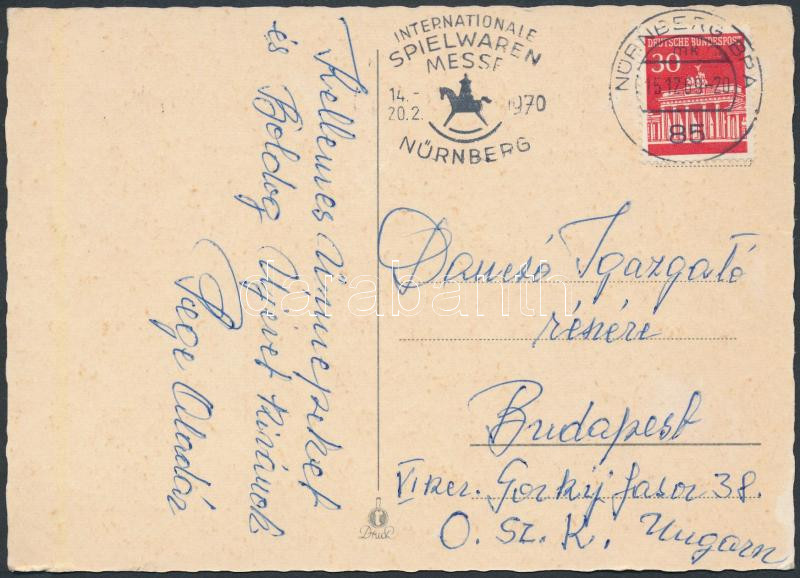 Kellemes Ünnepeket
és Boldog Újévet kívánok
Pege Aladár
INTERNATIONALE
SPIELWAREN
MESSE
14.-
20.2.
1970
NÜRNBERG
NÜRNBERG BPA
mk
15.12.69.-20
85
DEUTSCHE BUNDESPOST
30
Dancsó Igazgató
részére
Budapest
VI ker. Gorkij fasor 38.
O. Sz. K. Ungarn
Druck
darabanth